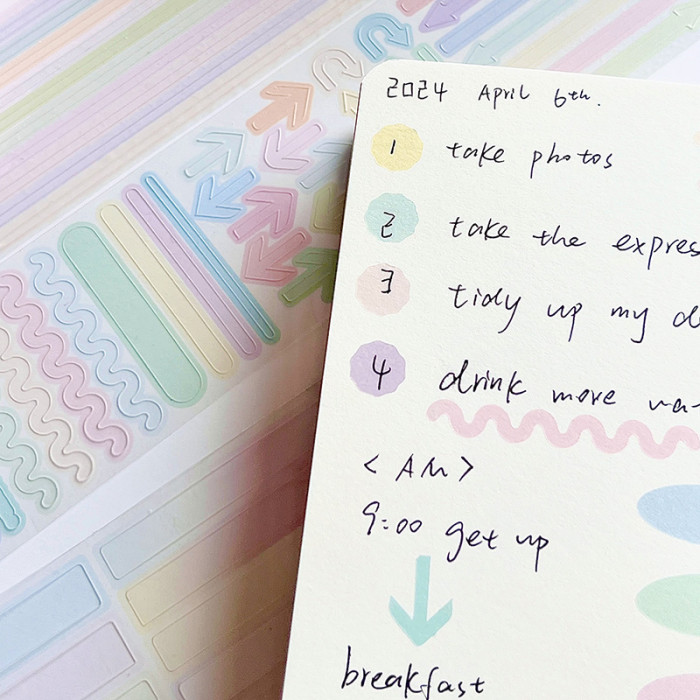 2024 April 6th.
1 take photos
2 take the expres
3 tidy up my d
4 drink more wa
< AM >
9:00 get up
breakfast